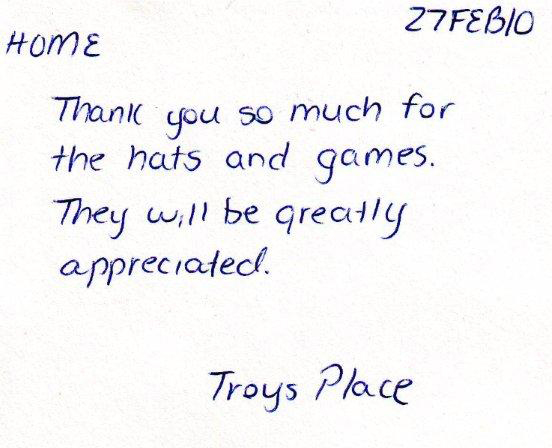 27FEB10
HOME
Thank you so much for
the hats and games.
They will be greatly
appreciated.
Troys Place